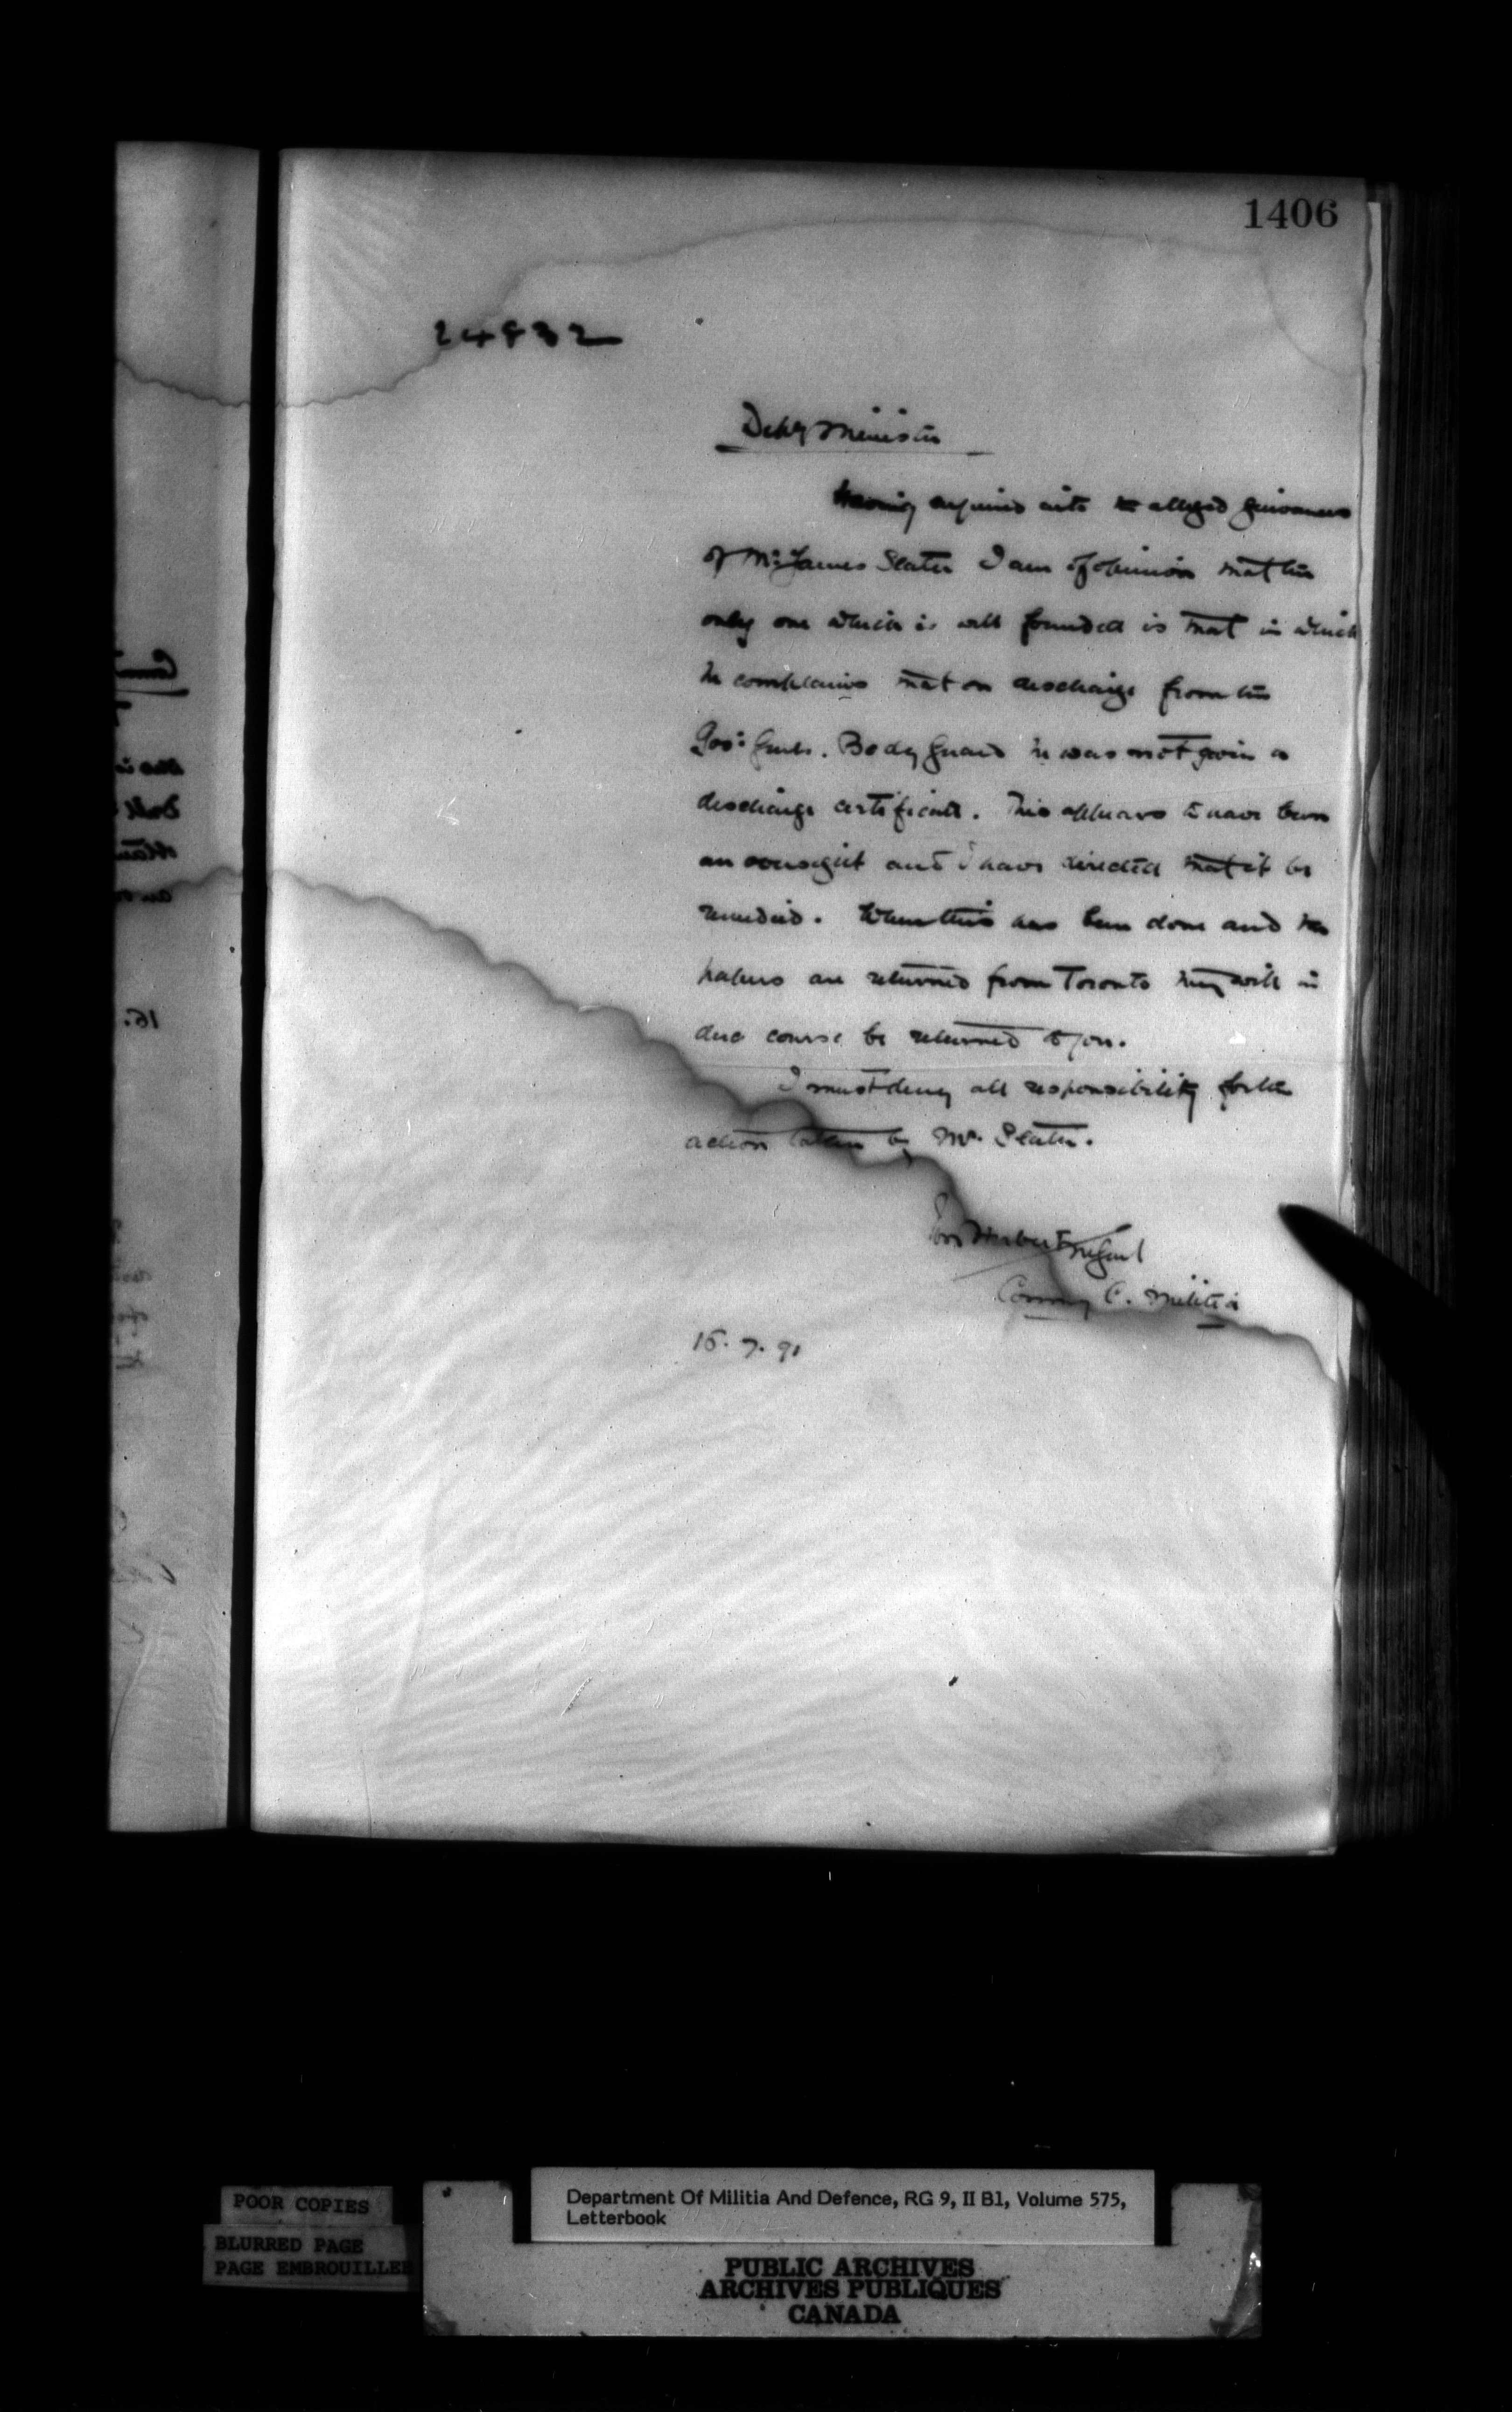 1406
24832
Depy Minister
Having enquired into the alleged grievances
of Mr. James Slater I am of opinion that the
only one which is well founded is that in which
he complains that on discharge from the
Gov: Genls. Body Guard he was not given a
discharge certificate. This appears to have been
an oversight and I have directed that it be
remedied. When this has been done and the
papers are returned from Toronto they will in
due course be returned to you.
I must deny all responsibility for the
action taken by Mr. Slater.
Ivor Herbert M Genl
Commg C. Militia
15. 7. 91
POOR COPIES
BLURRED PAGE
PAGE EMBROUILLEE
Department Of Militia And Defence, RG 9, II B1, Volume 575,
Letterbook
PUBLIC ARCHIVES
ARCHIVES PUBLIQUES
CANADA